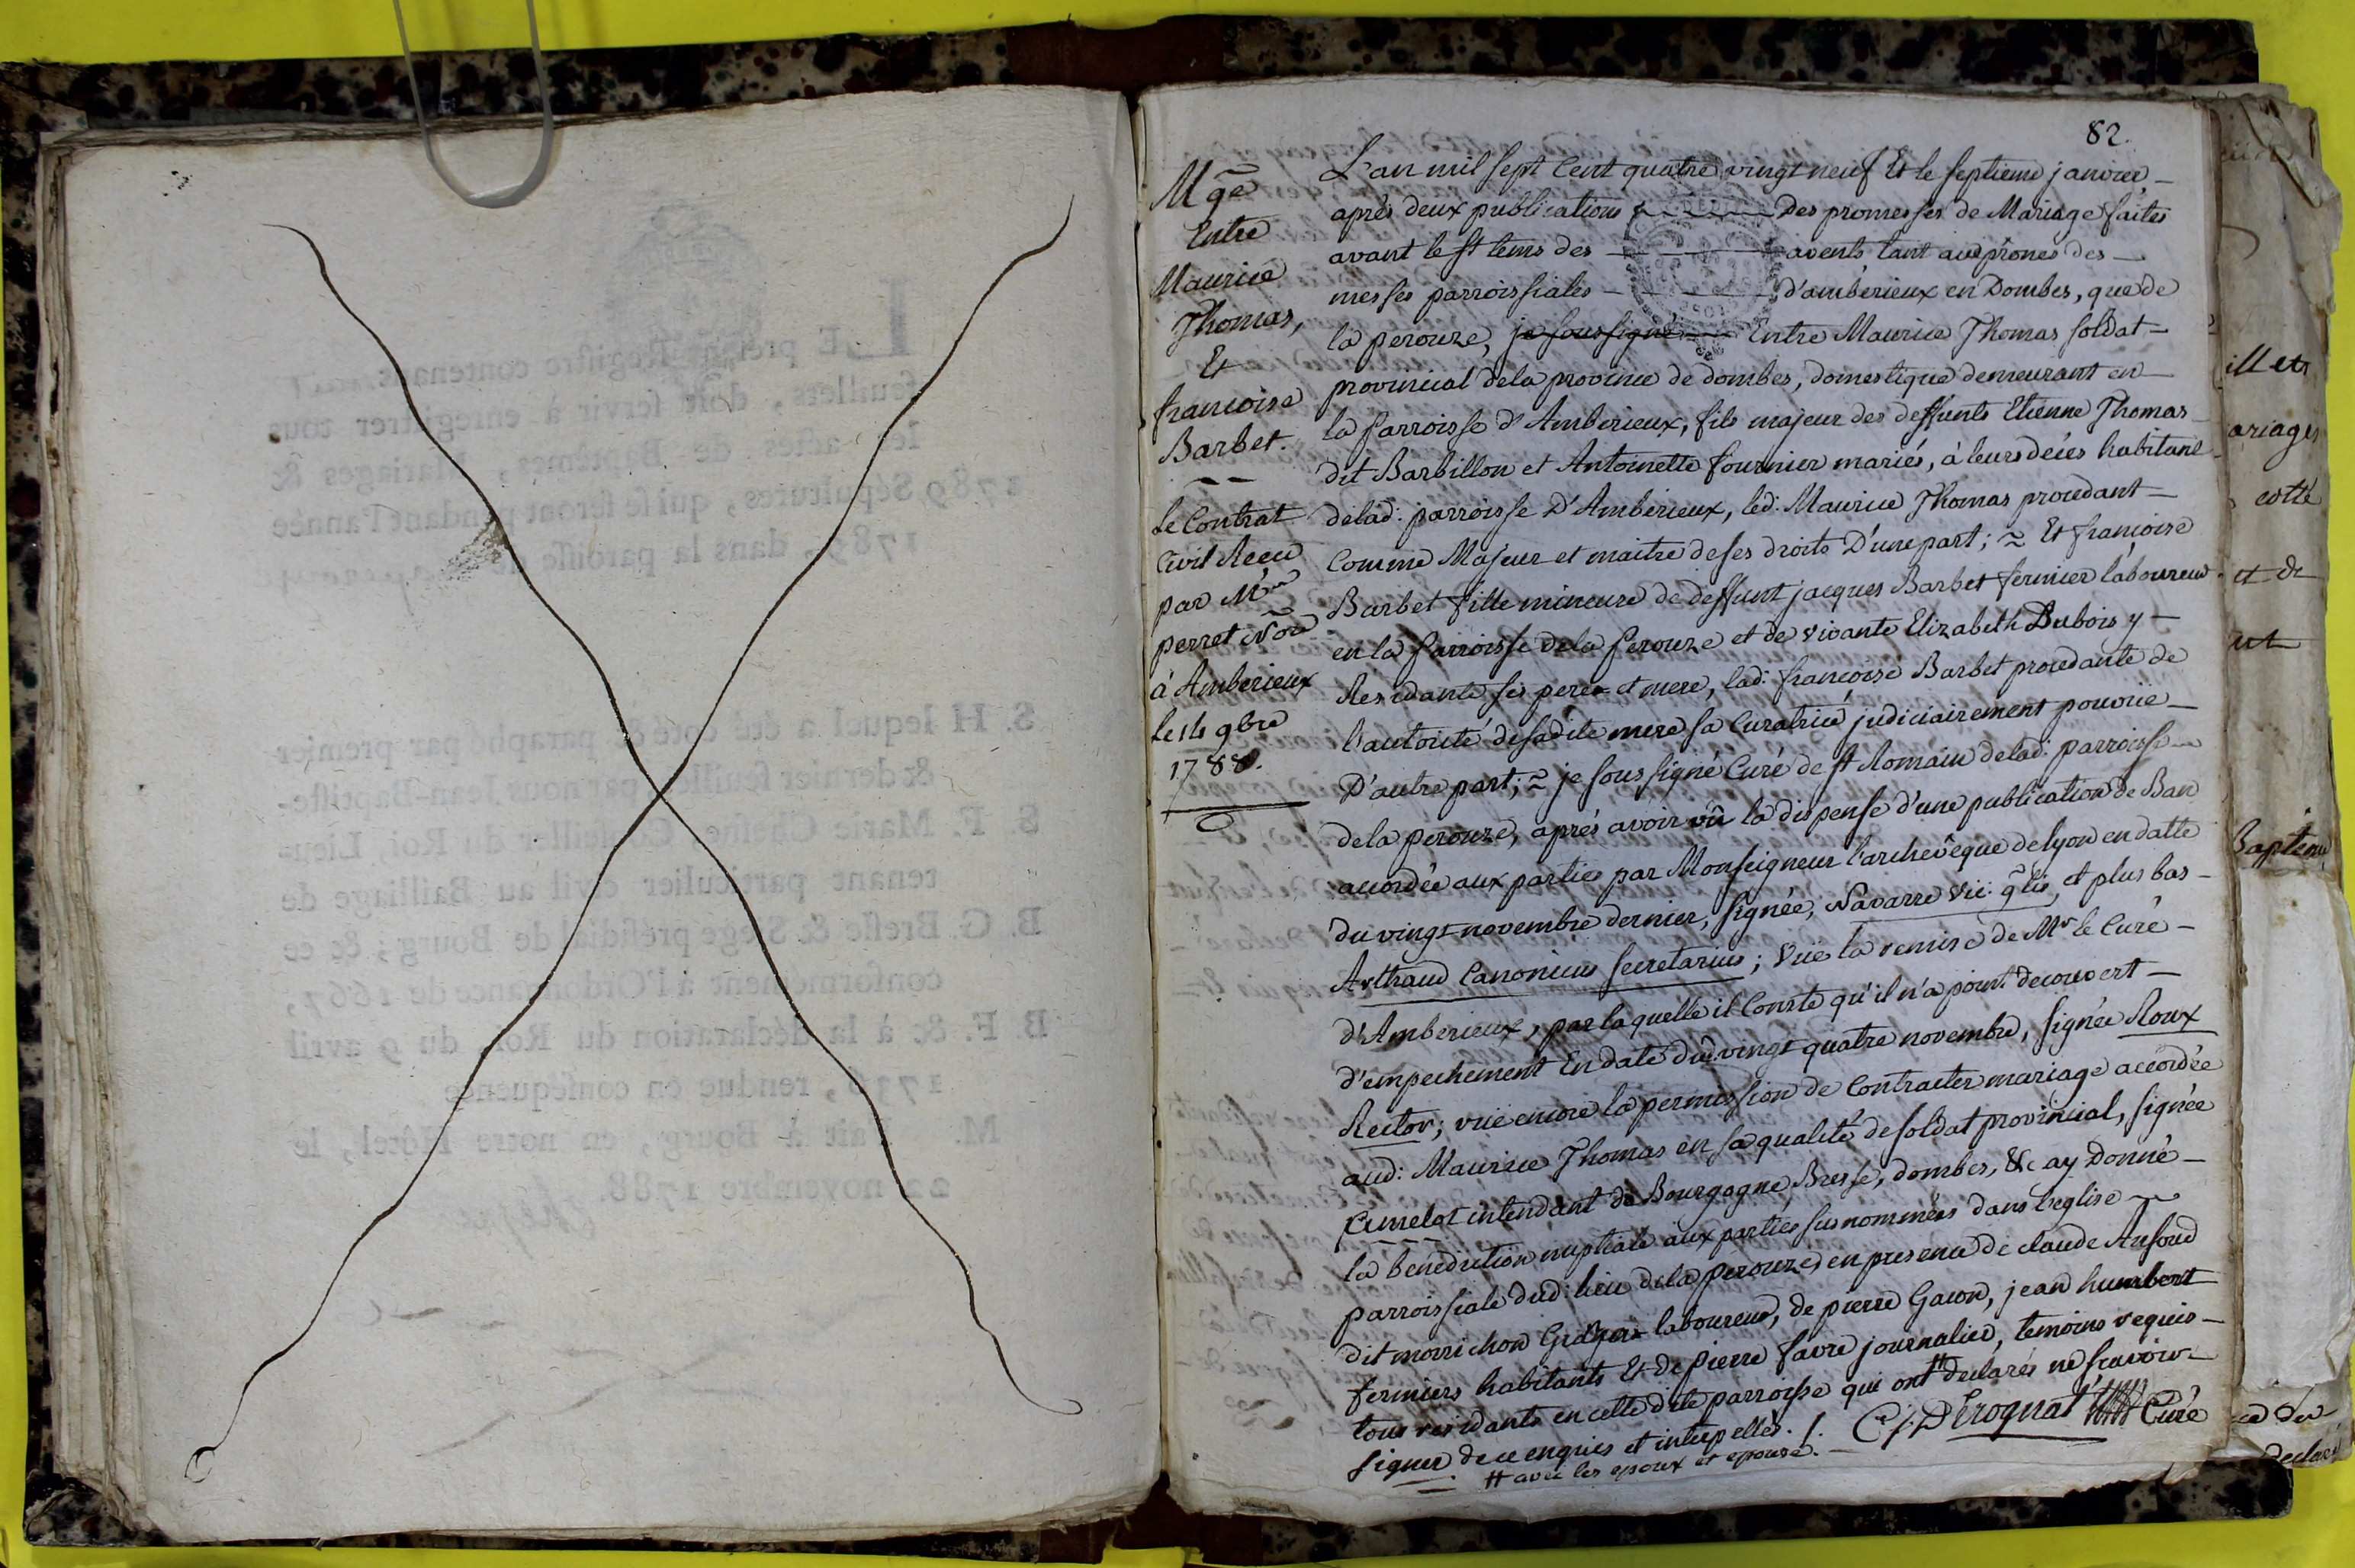 82.
Mgẽ
Entre
Maurice
Thomas,
Et
francoise
Barbet.
Le Contrat
Civil Recu
par Me
perret Nore
à Amberieux
le 14 9bre
1788.
L'an mil sept Cent quatre vingt neuf Et le septieme janvier,
aprés deux publications Des promesses de Mariage faites
avant le st tems des avents tant aux prônes des
messes parroissiales d'amberieux en Dombes, que de
la perouze, je soussigné Entre Maurice Thomas soldat
provincial dela province de dombes, domestique demeurant en
la parroisse d'Amberieux, fils majeur des deffunts Etienne Thomas
dit Barbillon et Antoinette fournier mariés, à leurs décés habitans
delad: parroisse D'Amberieux, led: Maurice Thomas procedant
Comme Majeur et maitre de ses droits D'une part; ~ Et francoise
Barbet fille mineure de deffunt jacques Barbet fermier laboureur
en la parroisse dela perouze et de vivante Elizabeth Dubois y
Residante ses pere et mere, lad: francoise Barbet procedante de
l'autorité de sadite mere sa Curatrice judiciairement pourvüe
D'autre part; ~ je soussigné Curé de st Romain delad: parroisse
dela perouze, aprés avoir vû la dispense d'une publication de Ban
accordée aux parties par Monseigneur l'archevêque de lyon en datte
du vingt novembre dernier, signée, Navarre Vic: glis, et plus bas
Arthaud Canonicus secretarius; Vüe la remise de Mr le Curé
d'Amberieux, par laquelle il Conste qu'il n'a point decouvert
d'empechement En date du vingt quatre novembre, signée Roux
Rector; vüe encore la permission de Contracter mariage accordée
aud: Maurice Thomas en sa qualité de soldat provincial, signée
amelot intendant de Bourgogne Bresse, dombes, &c ay Donné
la benediction nuptiale aux parties susnommées dans l'eglise
parroissiale dud: lieu dela perouze, en presence de claude
dit morrichon laboureur, de pierre Gacon, jean humbert
fermiers habitants Et de pierre favre journalier, temoins requis
tous residants en cette dite parroisse qui ont # declarés ne scavoir
signer de ce enquis et interpellés. /. Curé
# avec les epoux et epouse.
LE présent Registre contenant
feuillets, doit servir à enregistrer tous
les actes de Baptêmes, Mariages &
1789 Sépultures, qui se feront pendant l'année
1789, dans la paroisse de
S. H lequel a été coté & paraphé par premier
& dernier feuillet par nous Jean-Baptiste-
S. F. Marie Chesne, Conseiller du Roi, Lieu-
tenant particulier civil au Bailliage de
B. G. Bresse & Siege présidial de Bourg; & ce
conformément à l'Ordonnance de 1667,
B. F. & à la déclaration du Roi, du 9 avril
1736, rendue en conséquence
M. Fait à Bourg, en notre Hôtel, le
22 novembre 1788.
ariages
cotté
et de